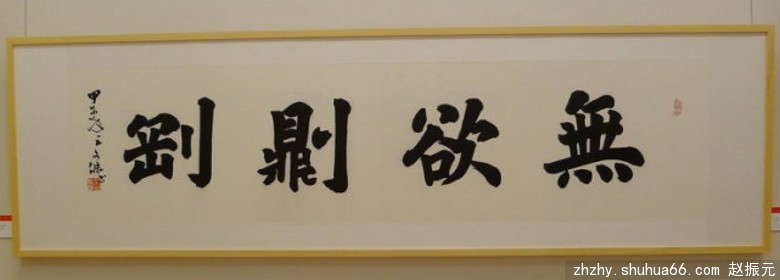 無欲則剛
zhzhy.shuhua66.com 赵振元